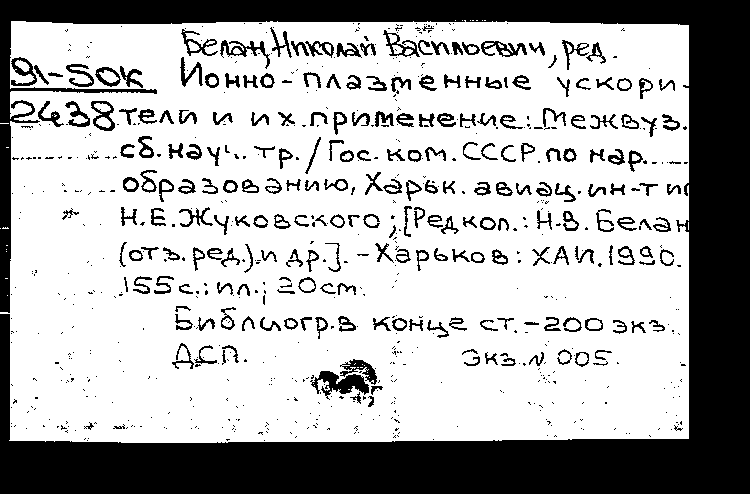 Белан, Николай Васильевич, ред.
91-50к Ионно-плазменные ускори-
2438 тели и их применение: Межвуз.
сб. науч. тр. / Гос. ком. СССР по нар.
образованию, Харьк. авиац. ин-т
Н.Е. Жуковского; [Редкол.: Н.В. Белан
(отв. ред.) и др.]. - Харьков: ХАИ. 1990.
155 с.: ил.; 20 см.
Библиогр. в конце ст. - 200 экз.
ДСП. Экз. N 005.